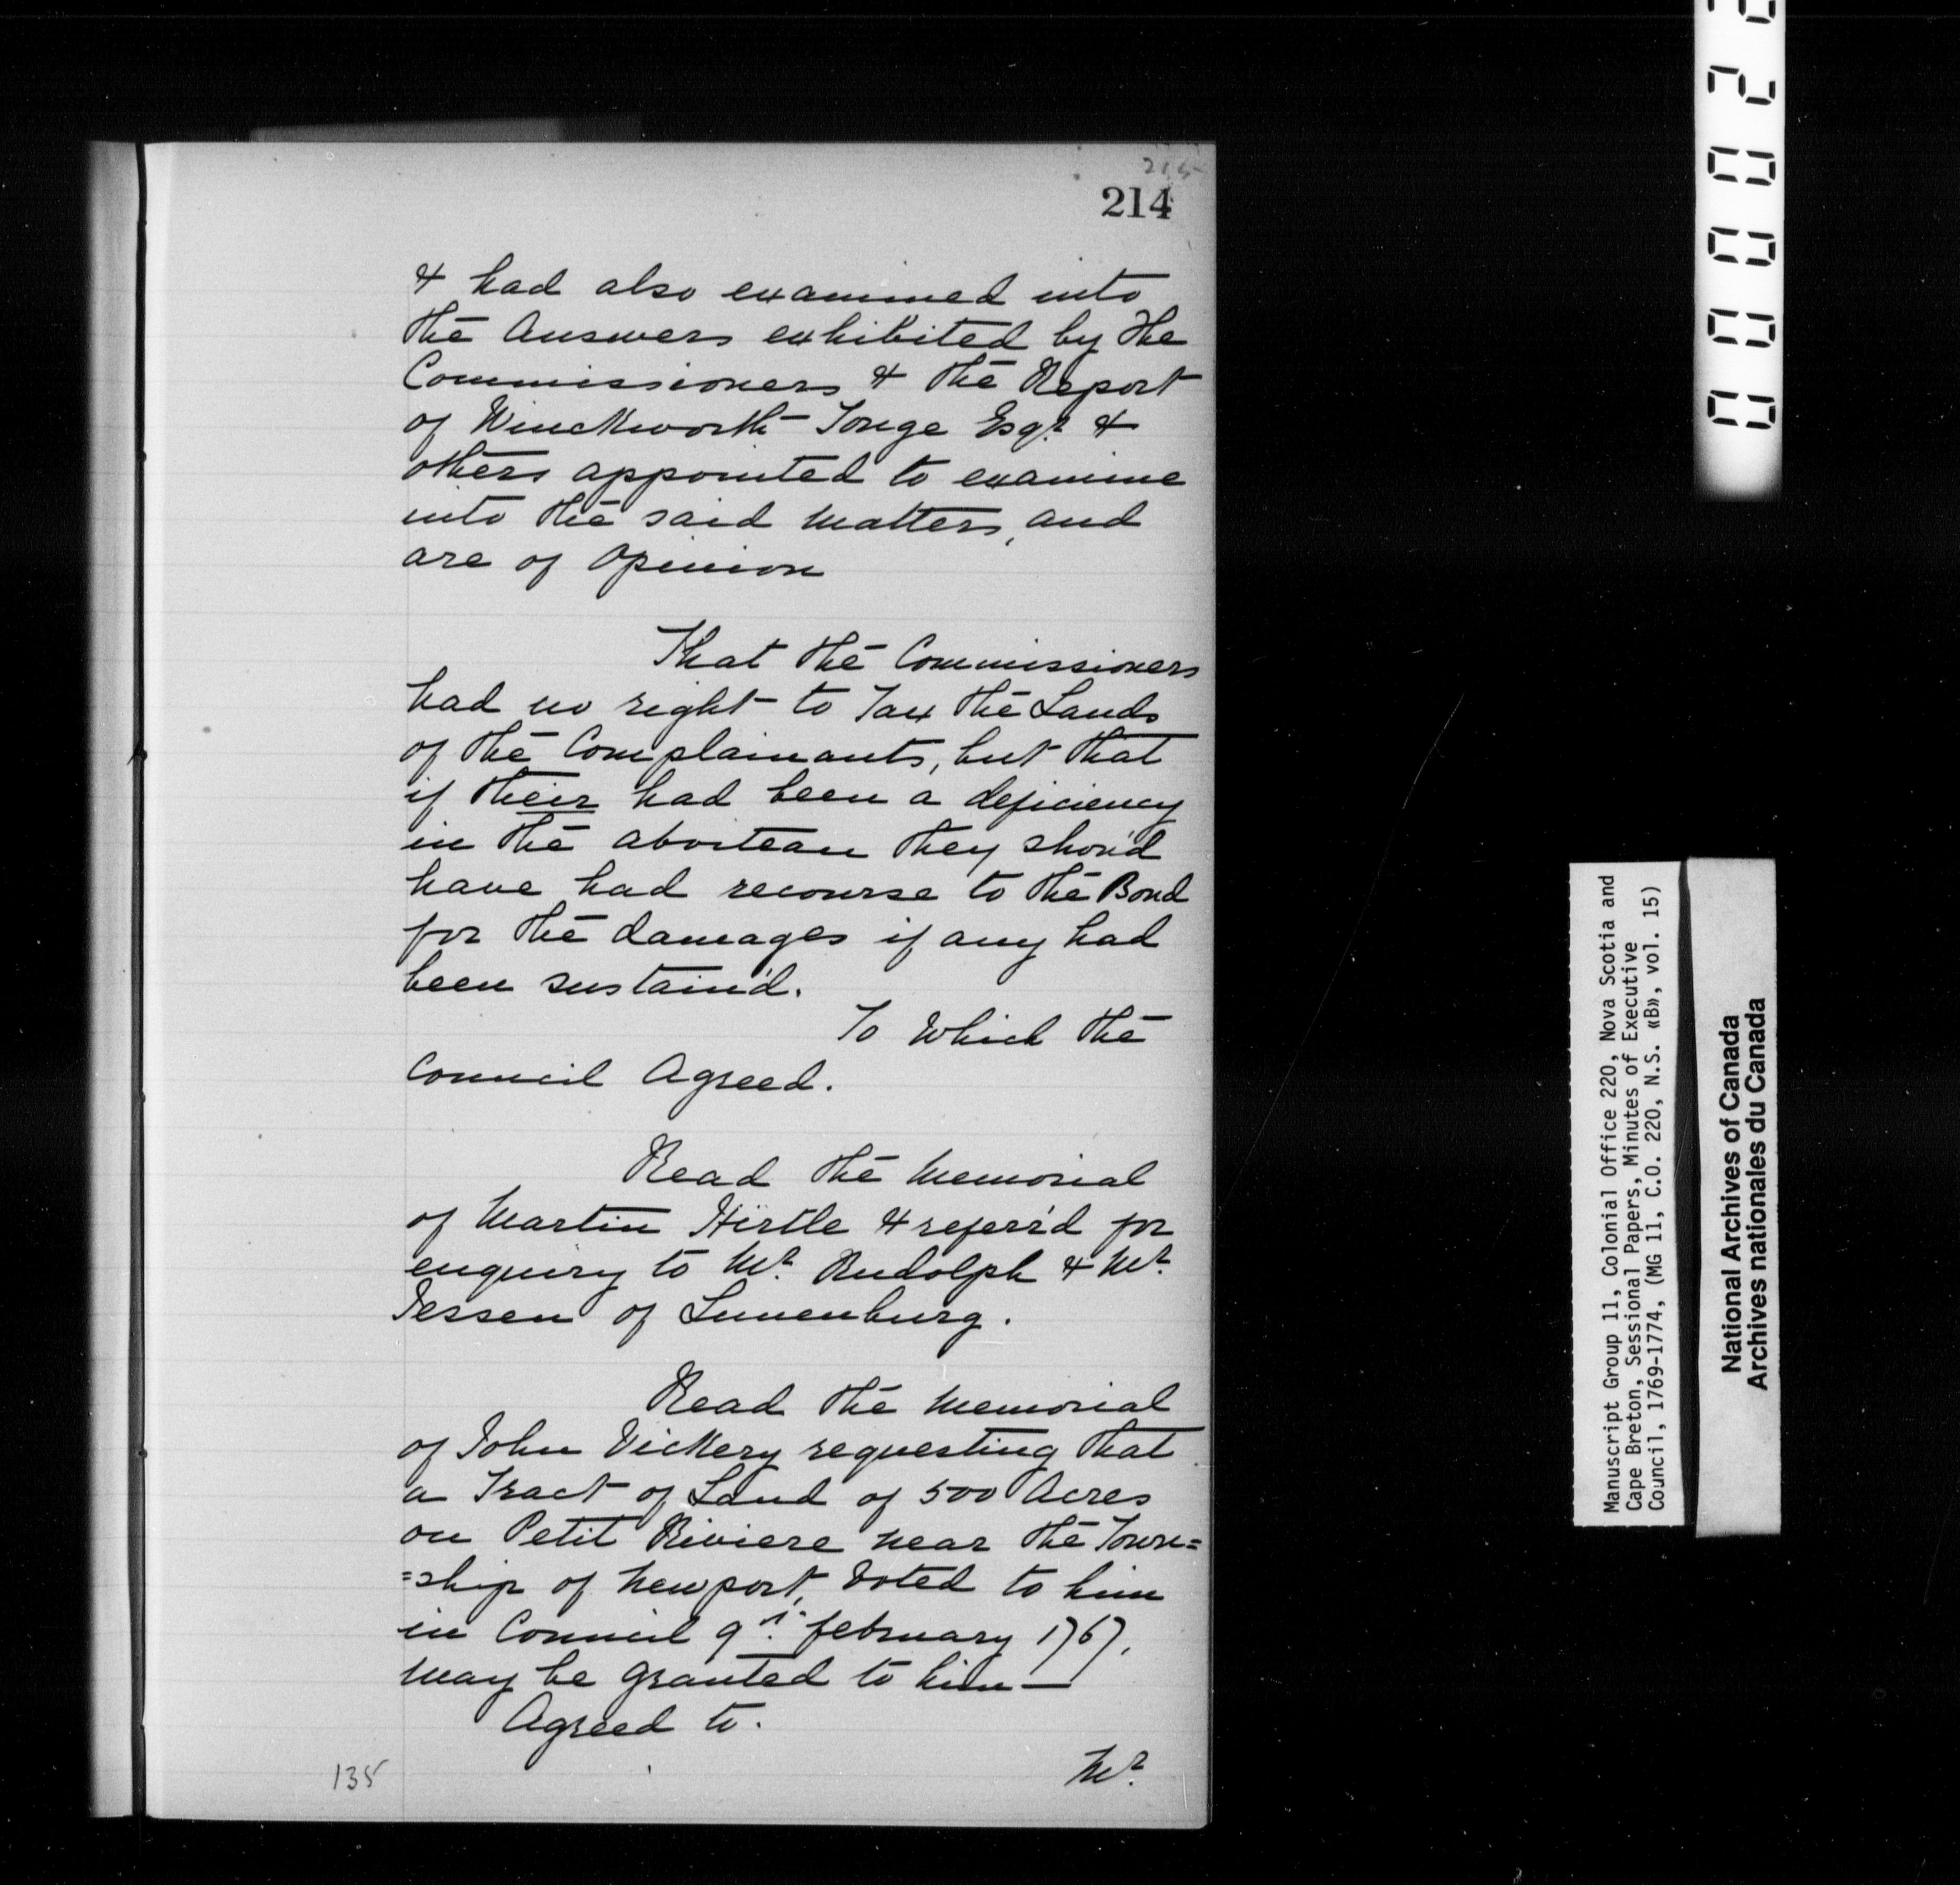 215
214
& had also examined into
the Answers exhibited by the
Commissioners & the Report
of Winckworth Tonge Esqr. &
others appointed to examine
into the said Matters, and
are of Opinion
That the Commissioners
had no right to Tax the Lands
of the Complainants, but that
if their had been a deficiency
in the aboiteau they shou'd
have had recourse to the Bond
for the damages if any had
been sustain'd.
To Which the
Council Agreed.
Read the Memorial
of Martin Hirtle & referr'd for
enquiry to Mr. Rudolph & Mr.
Jessen of Lunenburg.
Read the Memorial
of John Vickery requesting that
a Tract of Land of 500 Acres
on Petit Riviere near the Town=
=ship of Newport, Voted to him
in Council 9th. february 1767.
may be granted to him—
Agreed to.
135
Mr.
0 0 0 0 2 2
Manuscript Group 11, Colonial Office 220, Nova Scotia and
Cape Breton, Sessional Papers, Minutes of Executive
Council, 1769-1774, (MG 11, C.O. 220, N.S. «B», vol. 15)
National Archives of Canada
Archives nationales du Canada